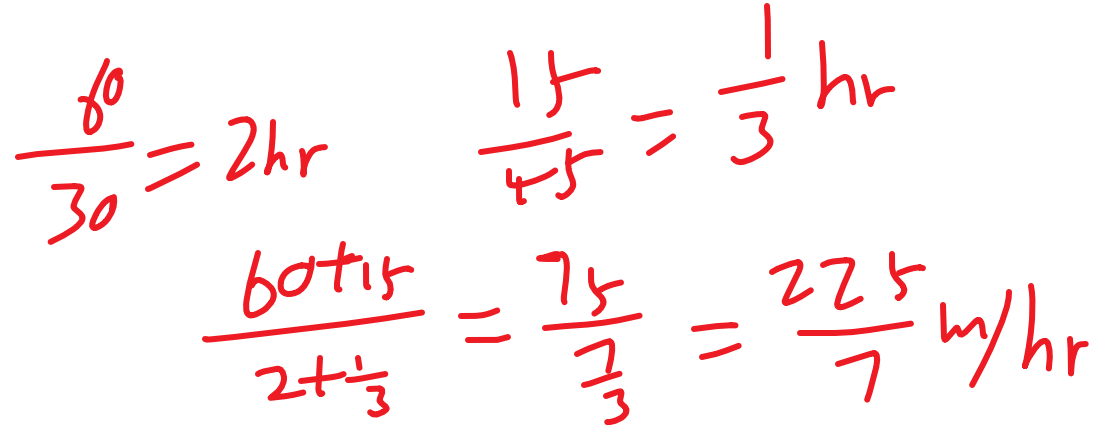 60/30 = 2hr 15/45 = 1/3 hr
60+15/2+1/3 = 75/7/3 = 225/7 m/hr